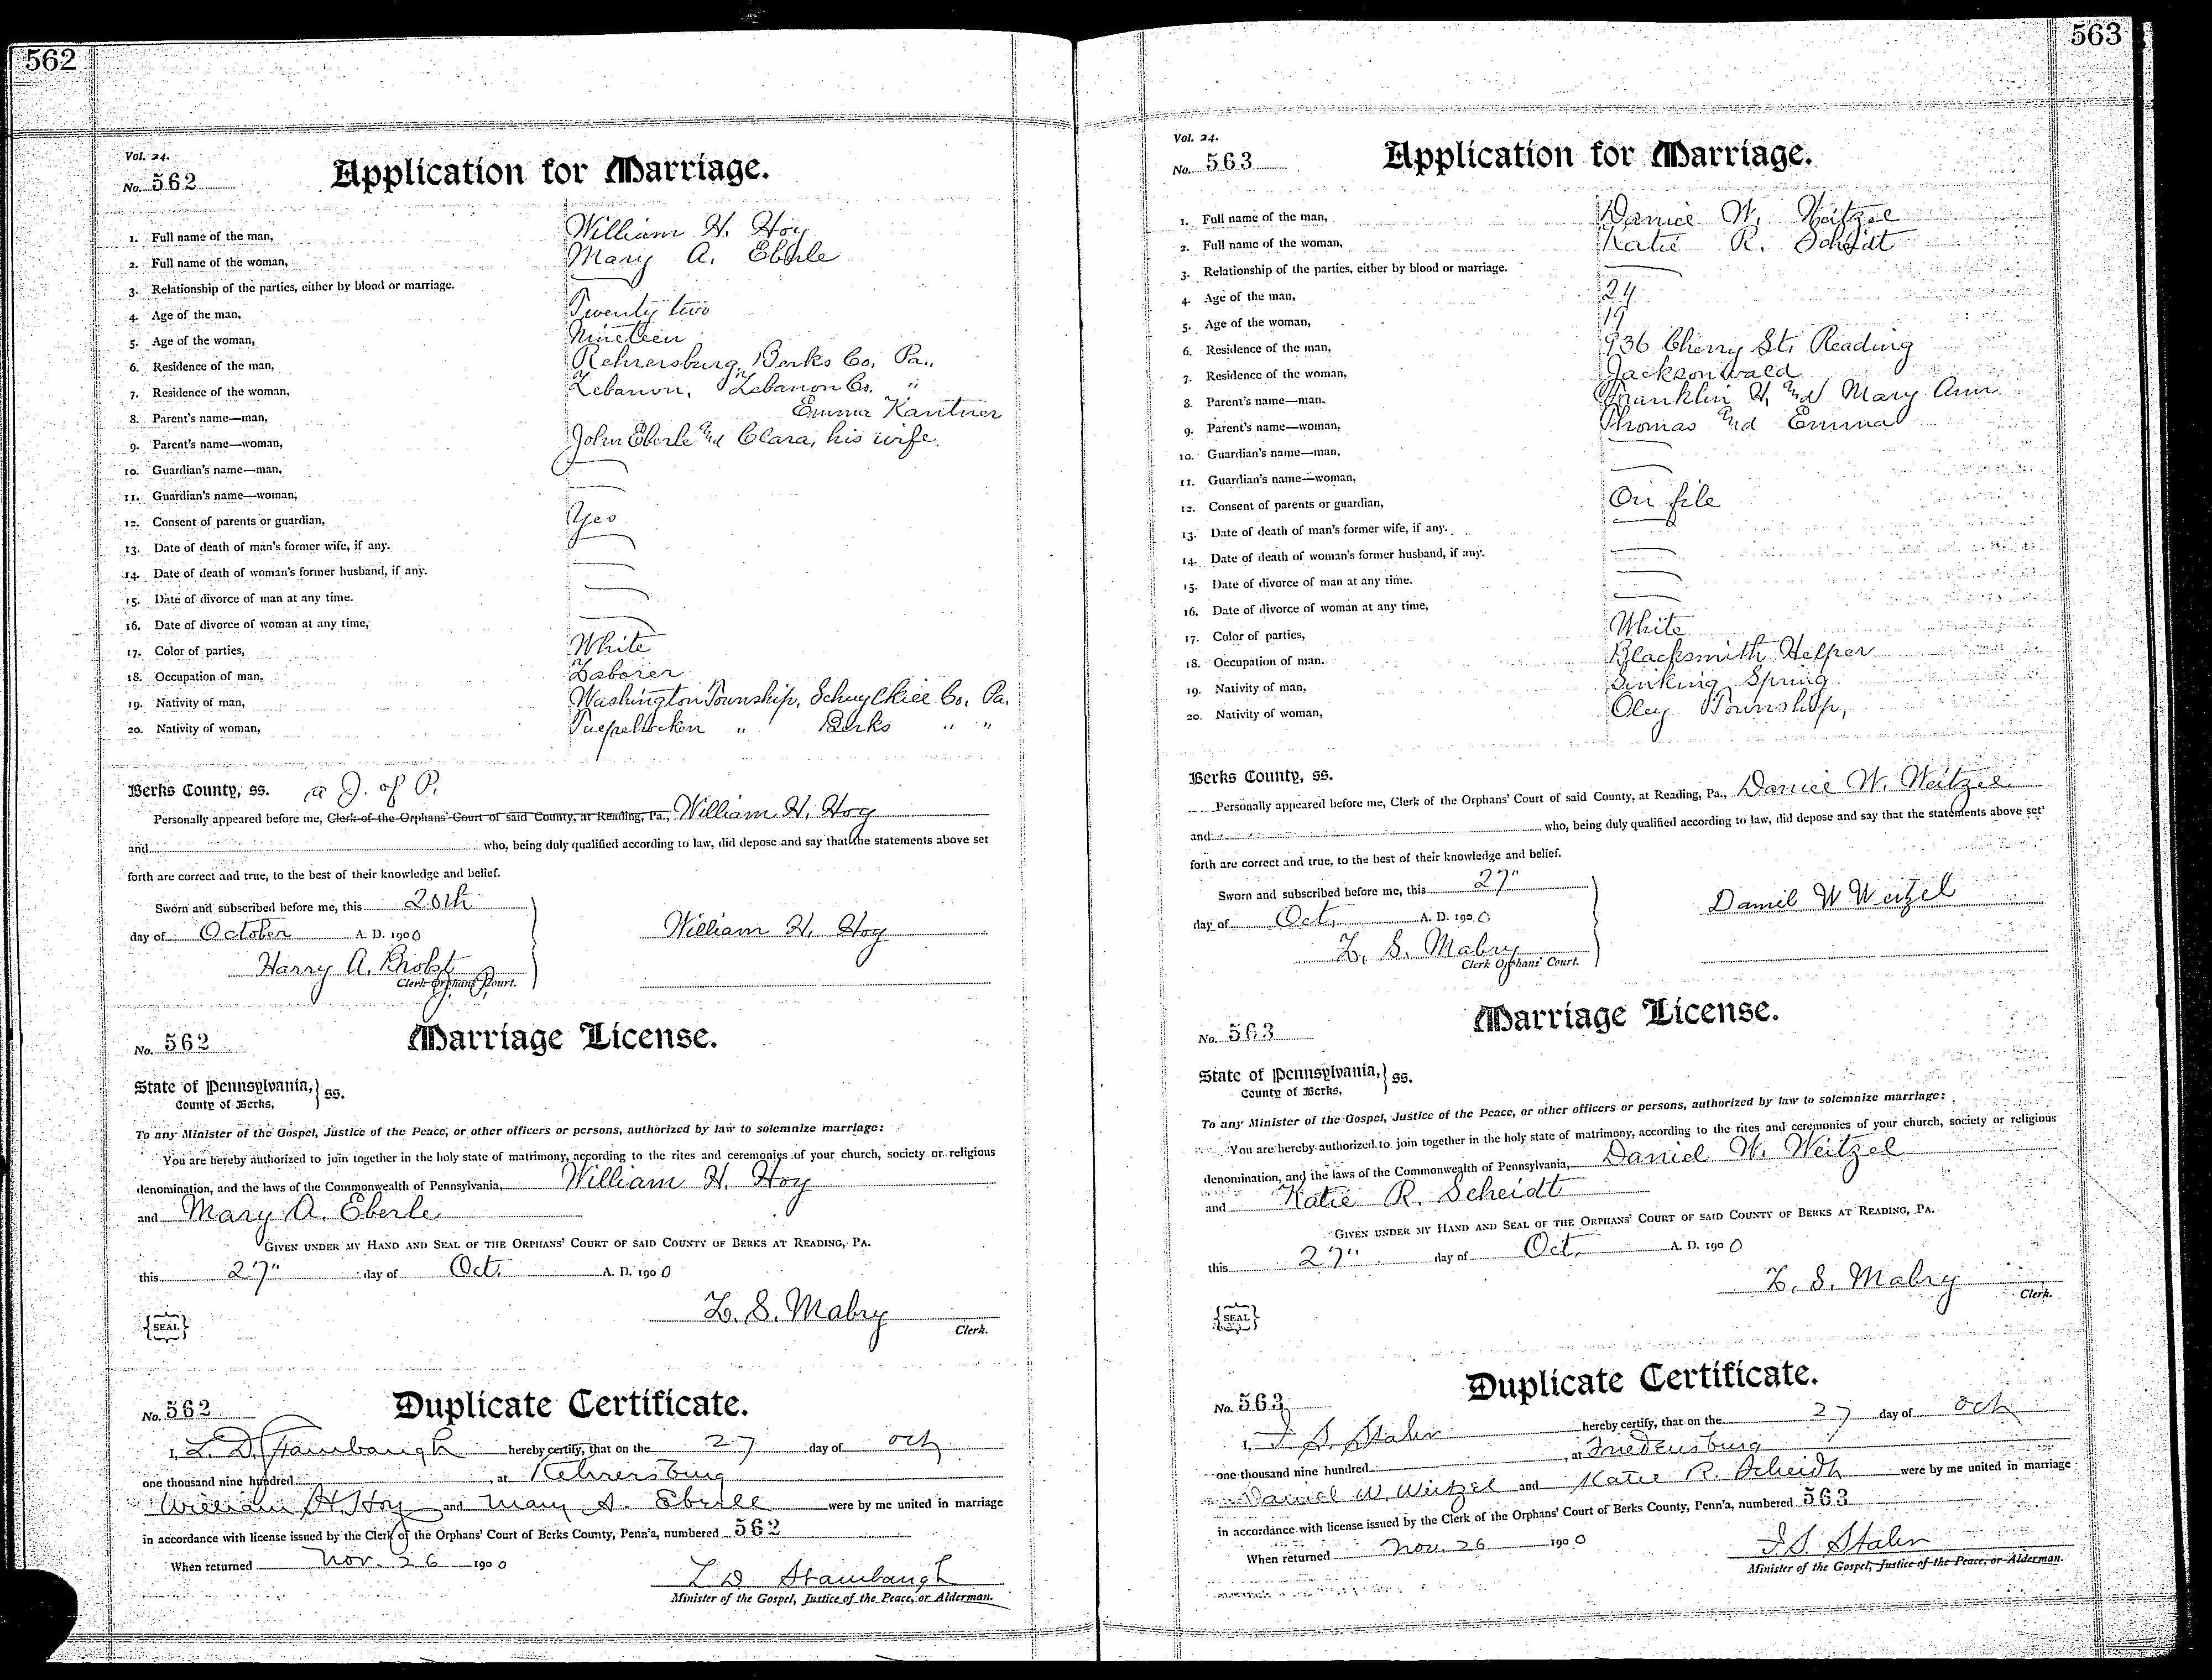 562
Vol. 24.
No. 562
Application for Marriage.
1. Full name of the man, William H. Hoy
2. Full name of the woman, Mary A. Eberle
3. Relationship of the parties, either by blood or marriage.
4. Age of the man, Twenty two
5. Age of the woman, Nineteen
6. Residence of the man, Rehrersburg, Berks Co. Pa.,
7. Residence of the woman, Lebanon, Lebanon Co. "
8. Parent's name—man, Emma Kantner
9. Parent's name—woman, John Eberle and Clara, his wife.
10. Guardian's name—man,
11. Guardian's name—woman,
12. Consent of parents or guardian, Yes
13. Date of death of man's former wife, if any.
14. Date of death of woman's former husband, if any.
15. Date of divorce of man at any time.
16. Date of divorce of woman at any time,
17. Color of parties, White
18. Occupation of man, Laborer
19. Nativity of man, Washington Township, Schuylkill Co. Pa.
20. Nativity of woman, Tulpehocken " Berks " "
Berks County, ss. a J. of P.
Personally appeared before me, Clerk of the Orphans' Court of said County, at Reading, Pa., William H. Hoy
and who, being duly qualified according to law, did depose and say that the statements above set
forth are correct and true, to the best of their knowledge and belief.
Sworn and subscribed before me, this 20th
day of October A. D. 1900
William H. Hoy
Harry A. Brobst
Clerk Orphans' Court.
J. P.
No. 562
Marriage License.
State of Pennsylvania, } ss.
County of Berks,
To any Minister of the Gospel, Justice of the Peace, or other officers or persons, authorized by law to solemnize marriage:
You are hereby authorized to join together in the holy state of matrimony, according to the rites and ceremonies of your church, society or religious
denomination, and the laws of the Commonwealth of Pennsylvania, William H. Hoy
and Mary A. Eberle
Given under my Hand and Seal of the Orphans' Court of said County of Berks at Reading, Pa.
this 27" day of Oct. A. D. 1900
Z. S. Mabry
SEAL
Clerk.
No. 562
Duplicate Certificate.
I, L. D. Stambaugh hereby certify, that on the 27 day of Oct
one thousand nine hundred , at Rehrersburg
William H. Hoy and Mary A. Eberle were by me united in marriage
in accordance with license issued by the Clerk of the Orphans' Court of Berks County, Penn'a, numbered 562
When returned Nov. 26 1900
L D Stambaugh
Minister of the Gospel, Justice of the Peace, or Alderman.
563
Vol. 24.
No. 563
Application for Marriage.
1. Full name of the man, Daniel W. Weitzel
2. Full name of the woman, Katie R. Scheidt
3. Relationship of the parties, either by blood or marriage.
4. Age of the man, 24
5. Age of the woman, 19
6. Residence of the man, 936 Cherry St. Reading
7. Residence of the woman, Jacksonwald
8. Parent's name—man. Franklin H. and Mary Ann
9. Parent's name—woman, Thomas and Emma
10. Guardian's name—man,
11. Guardian's name—woman,
12. Consent of parents or guardian, On file
13. Date of death of man's former wife, if any.
14. Date of death of woman's former husband, if any.
15. Date of divorce of man at any time.
16. Date of divorce of woman at any time,
17. Color of parties, White
18. Occupation of man. Blacksmith Helper
19. Nativity of man, Sinking Spring
20. Nativity of woman, Oley Township,
Berks County, ss.
Personally appeared before me, Clerk of the Orphans' Court of said County, at Reading, Pa., Daniel W. Weitzel
and who, being duly qualified according to law, did depose and say that the statements above set
forth are correct and true, to the best of their knowledge and belief.
Sworn and subscribed before me, this 27"
day of Oct. A. D. 1900
Daniel W Weitzel
Z. S. Mabry
Clerk Orphans' Court.
No. 563
Marriage License.
State of Pennsylvania, } ss.
County of Berks,
To any Minister of the Gospel, Justice of the Peace, or other officers or persons, authorized by law to solemnize marriage:
You are hereby authorized to join together in the holy state of matrimony, according to the rites and ceremonies of your church, society or religious
denomination, and the laws of the Commonwealth of Pennsylvania, Daniel W. Weitzel
and Katie R. Scheidt
Given under my Hand and Seal of the Orphans' Court of said County of Berks at Reading, Pa.
this 27" day of Oct. A. D. 1900
Z. S. Mabry
SEAL
Clerk.
No. 563
Duplicate Certificate.
I, I. S. Stahr hereby certify, that on the 27 day of Oct
one thousand nine hundred , at Friedensburg
Daniel W. Weitzel and Katie R. Scheidt were by me united in marriage
in accordance with license issued by the Clerk of the Orphans' Court of Berks County, Penn'a, numbered 563
When returned Nov. 26 1900
I S Stahr
Minister of the Gospel, Justice of the Peace, or Alderman.